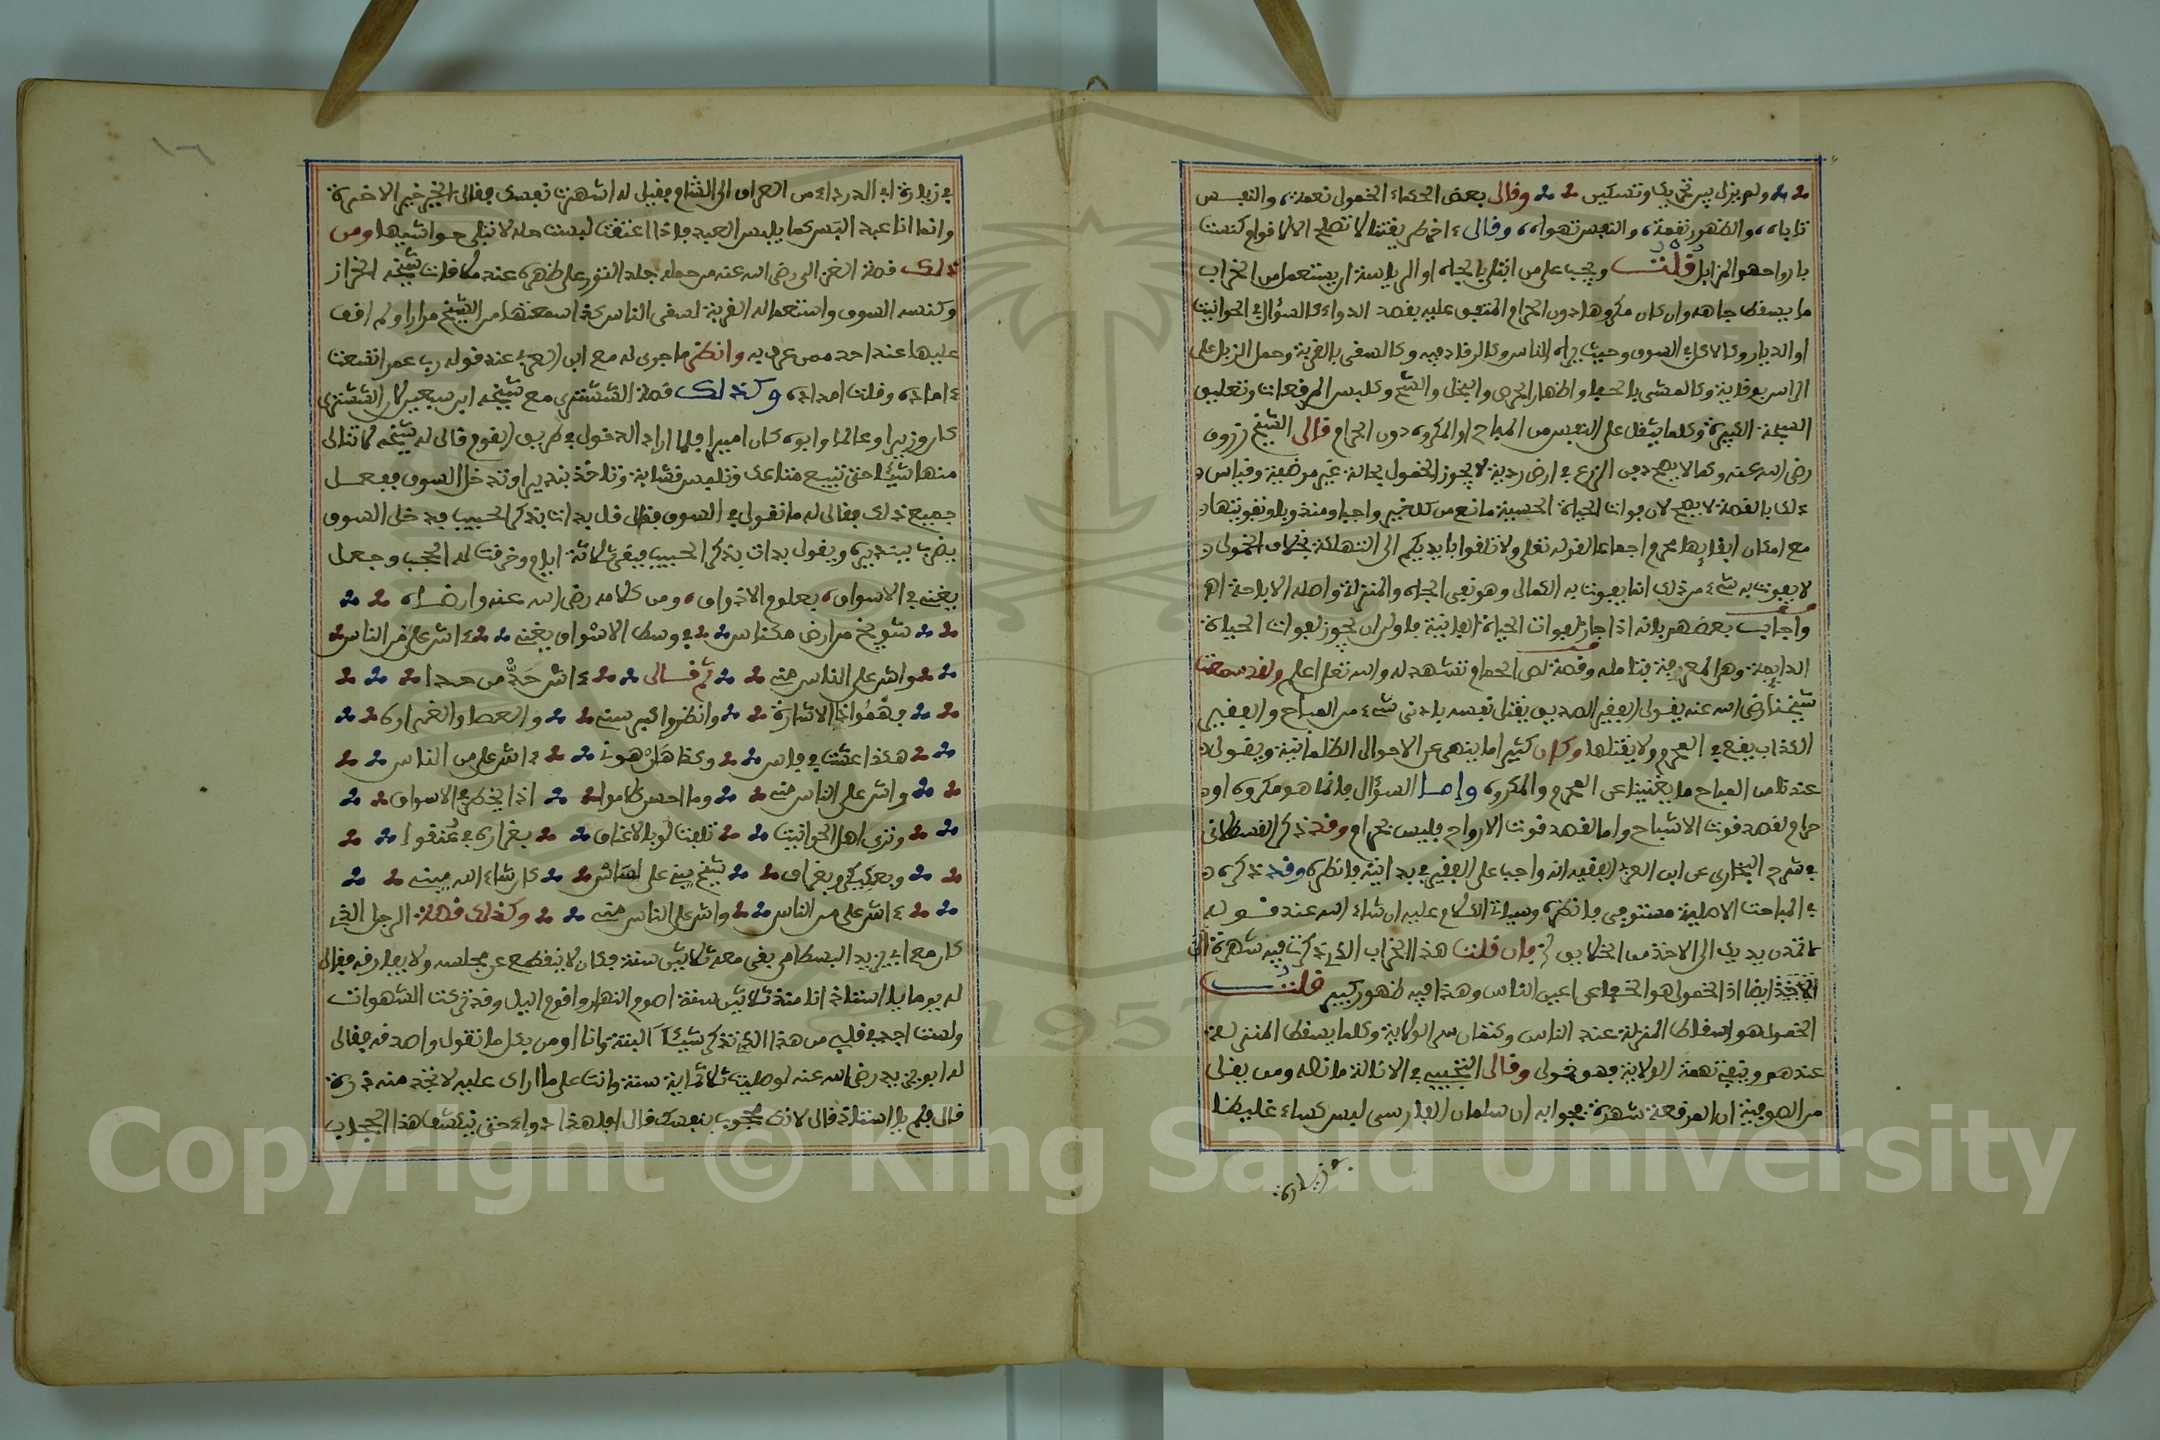 ولم يزل بين تحريك وتسكين وقال بعض الحكماء الخمول نعمة والنفس
تاباه والظهور نقمة والنفس تهواه وقال ءاخر طريقتنا لا تصلح الا لاقوام كنست
بارواحهم المزابل قلت ويجب على من ابتلي بالجاه او الرياسة ان يستعمل من الخراب
ما يسقط جاهه وان كان مكروها دون الحرام المتفق عليه بقصد الدواء كالسؤال في الحوانيت
او الديار وكالاكل في السوق وحيث يراه الناس وكالرقاد فيه وكالسقي بالقربة وحمل الزبل على
الراس بوقاية وكالمشي بالحفا واظهار الحرص والبخل والشح وكلبس المرقعات وتعليق
السبحة الكبيرة وكلما يثقل على النفس من المباح او المكروه دون الحرام قال الشيخ زروق
رضي الله عنه وكما لا يصح دفن الزرع في ارض ردية لا يجوز الخمول بحالة غير مرضية وقياس
ذلك بالغصة لا يصح لان فوات الحياة الحسية مانع من كل خير واجبا ومندوبا وتفويتها
مع امكان ابقايها محرم اجماعا لقوله تعلى ولا تلقوا بايديكم الى التهلكة بخلاف الخمول
لا يفوت به شيء من ذلك انما يفوت به الكمال وهو نفي الجاه والمنزلة واصله الاباحة اهـ
واجاب بعضهم بانه اذا جاز لفوات الحياة الفانية فاولى ان يجوز لفوات الحياة
الدايمة وهي المعرفة فتامله وقصة لص الحمام تشهد له والله تعلى اعلم ولقد سمعت
شيخنا رضي الله عنه يقول الفقير الصديق يقتل نفسه بادنى شيء من المباح والفقير
الكذاب يقع في المحرم ولا يقتلها وكان كثيرا ما ينهى عن الاحوال الظلمانية ويقول
عندنا من المباح ما يغنينا عن المحرم والمكروه واما السؤال فانما هو مكروه او
حرام لقصد قوت الاشباح واما لقصد قوت الارواح فليس بحرام وقد ذكر القسطلاني
في شرح البخاري عن ابن العربي الفقيه انه واجب على الفقير في بدايته فانظره وقد ذكره
في المباحث الاصلية مستوفى فانظره وسياتي الكلام عليه ان شاء الله عند قوله
لا تمدن يديك الى الاخذ من الخلايق فان قلت هذا الخراب الذي ذكرت فيه شهرة
ايضا اذ الخمول هو الخفا عن اعين الناس وهذا فيه ظهور كبير قلت
الخمول هو اسقاط المنزلة عند الناس وكتمان سر الولاية وكلما يسقط المنزلة
عندهم وينفي تهمة الولاية فهو خمول وقال التجيبي في الانالة ما نصه ومن يقل
من الصوفية ان المرقعة شهرة فجوابه ان سلمان الفارسي لبس كساء غليظا
في زيارة
في زيارة ابي الدرداء من العراق الى الشام فقيل له اشهرت نفسك فقال الخير خير الاخرة
وانما انا عبد البس كما يلبس العبد فاذا اعتقت لبست حلة لا تبلى حواشيها ومن
ذلك قصة الغزالي رضي الله عنه من حمله جلد الثور على ظهره عند ملاقات شيخه الخراز
وكنسه السوق واستعماله القربة لسقي الناس كذا سمعتها من الشيخ مرارا ولم اقف
عليها عند احد ممن عرف به وانظر ما جرى له مع ابن العربي عند قوله رب عمر اتسعت
ءاماده وقلت امداده وكذلك قصة الششتري مع شيخه ابن سبعين لان الششتري
كان وزيرا وعالما وابوه كان اميرا فلما اراد الدخول في طريق القوم قال له شيخه لا تنال
منها شيئا حتى تبيع متاعك وتلبس قشابة وتاخذ بنديرا وتدخل السوق ففعل
جميع ذلك فقال له ما نقول في السوق فقال قل بدات بذكر الحبيب فدخل السوق
يضرب ببنديره ويقول بدات بذكر الحبيب فبقي ثلاثة ايام وخرقت له الحجب وجعل
يغني في الاسواق بعلوم الاذواق ومن كلامه رضي الله عنه وارضاه
شويخ من ارض مكناس في وسط الاسواق يغني ءاش علي من الناس
واش على الناس مني ثم قال ءاش حد من حدا
افهموا ذا الاشارة وانظروا كبر سني والعصا والغرارة
هكذا عشت في فاس وكذا هان هوني ءاش علي من الناس
واش على الناس مني وما احسن كلامو اذا يخطر في الاسواق
وترى اهل الحوانيت تلفت لو بالاعناق بغرارة في عنقو
وبعكيكز وبغراف شيخ يبني على اساس كان شاء الله يبني
ءاش علي من الناس واش على الناس مني وكذلك قصة الرجل الذي
كان مع ابي يزيد البسطامي بقي معه ثلاثين سنة فكان لا ينقطع عن مجلسه ولا يفارقه فقال
له يوما يا استاذ انا منذ ثلاثين سنة اصوم النهار واقوم اليل وقد تركت الشهوات
ولست اجد في قلبي من هذا الذي تذكر شيئا البتة وانا اومن بكل ما تقول واصدقه فقال
له ابو يزيد رضي الله عنه لو صليت ثلاثماية سنة وانت على ما اراك عليه لا تجد منه ذرة
قال فلم يا استاذ قال لانك محجوب بنفسك قال افلهذا دواء حتى ينكشف هذا الحجاب